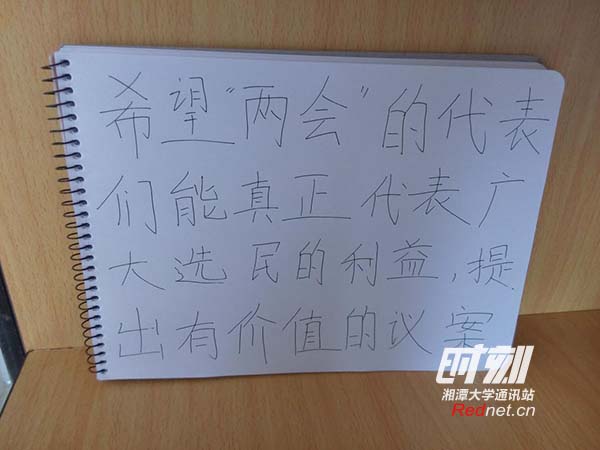 希望“两会”的代表
们能真正代表广
大选民的利益,提
出有价值的议案
时刻
湘潭大学通讯站
Rednet.cn